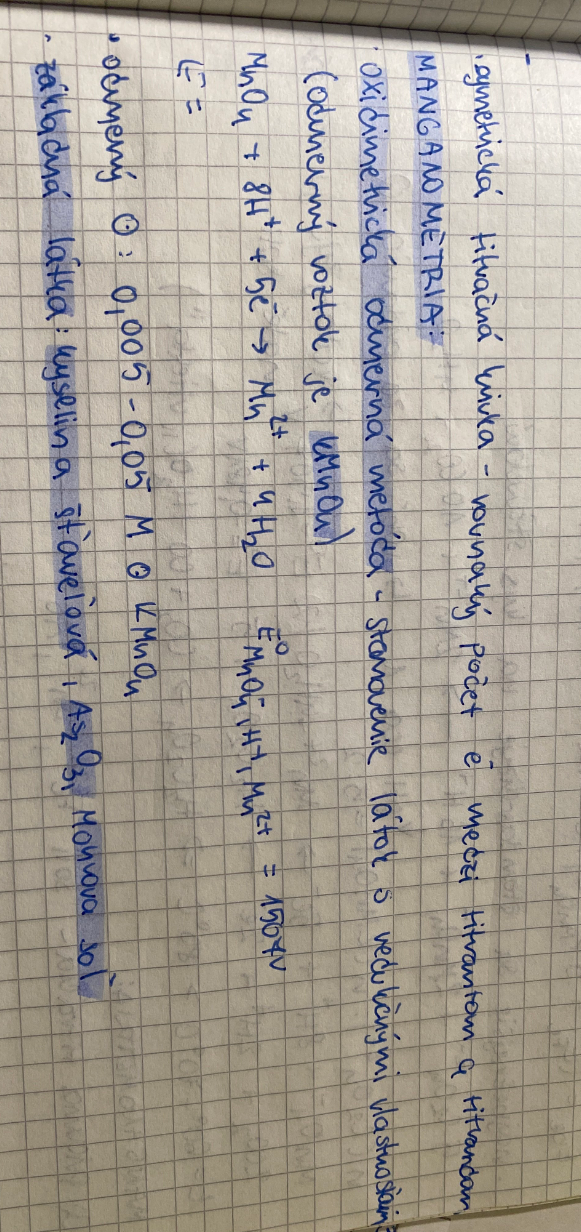 -
· symetrická titračná krivka - rovnaký počet é medzi titrantom a titrandom
MANGANOMÉTRIA:
· oxidimetrická odmerná metóda - stanovenie látok s redukčnými vlastnosťami
(odmerný roztok je KMnO₄)
MnO₄ + 8H⁺ + 5é → Mn²⁺ + 4H₂O E⁰MnO₄⁻,H⁺,Mn²⁺ = 1,507V
E =
• odmerný ⊙: 0,005 - 0,05 M ⊙ KMnO₄
· základná látka: kyselina šťaveľová, As₂O₃, Mohrova soľ